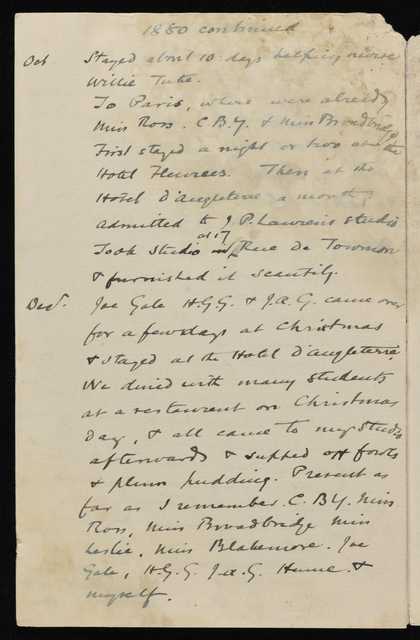 1880 continued
Oct Stayed about 10 days helping nurse
Willie Tuke.
To Paris, where were already
Miss Ross. C.B.Y. & Miss Broadbridge
First stayed a night or two at the
Hotel Then at the
Hotel D'angleterre a month
admitted to J.P. Laurens studio
Took Studio at 17 Rue De Tournon
& furnished it scantily.
Decr. Joe Gale H.G.G. & J.A.G. came over
for a few days at Christmas
& stayed at the Hotel D'angleterre
We dined with many students
at a restaurent on Christmas
Day, & all came to my studio
afterwards & supped off fowls
& plum pudding. Present as
far as I remember. C.B.Y. Miss
Ross, Miss Broadbridge Miss
Leslie, Miss Blakemore. Joe
Gale, H.G.G. J.A.G. Hume &
myself.